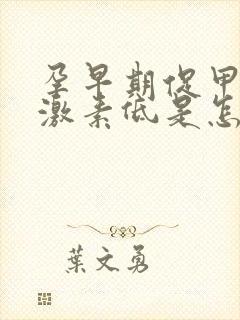 孕早期促甲
激素低是怎
葉文勇